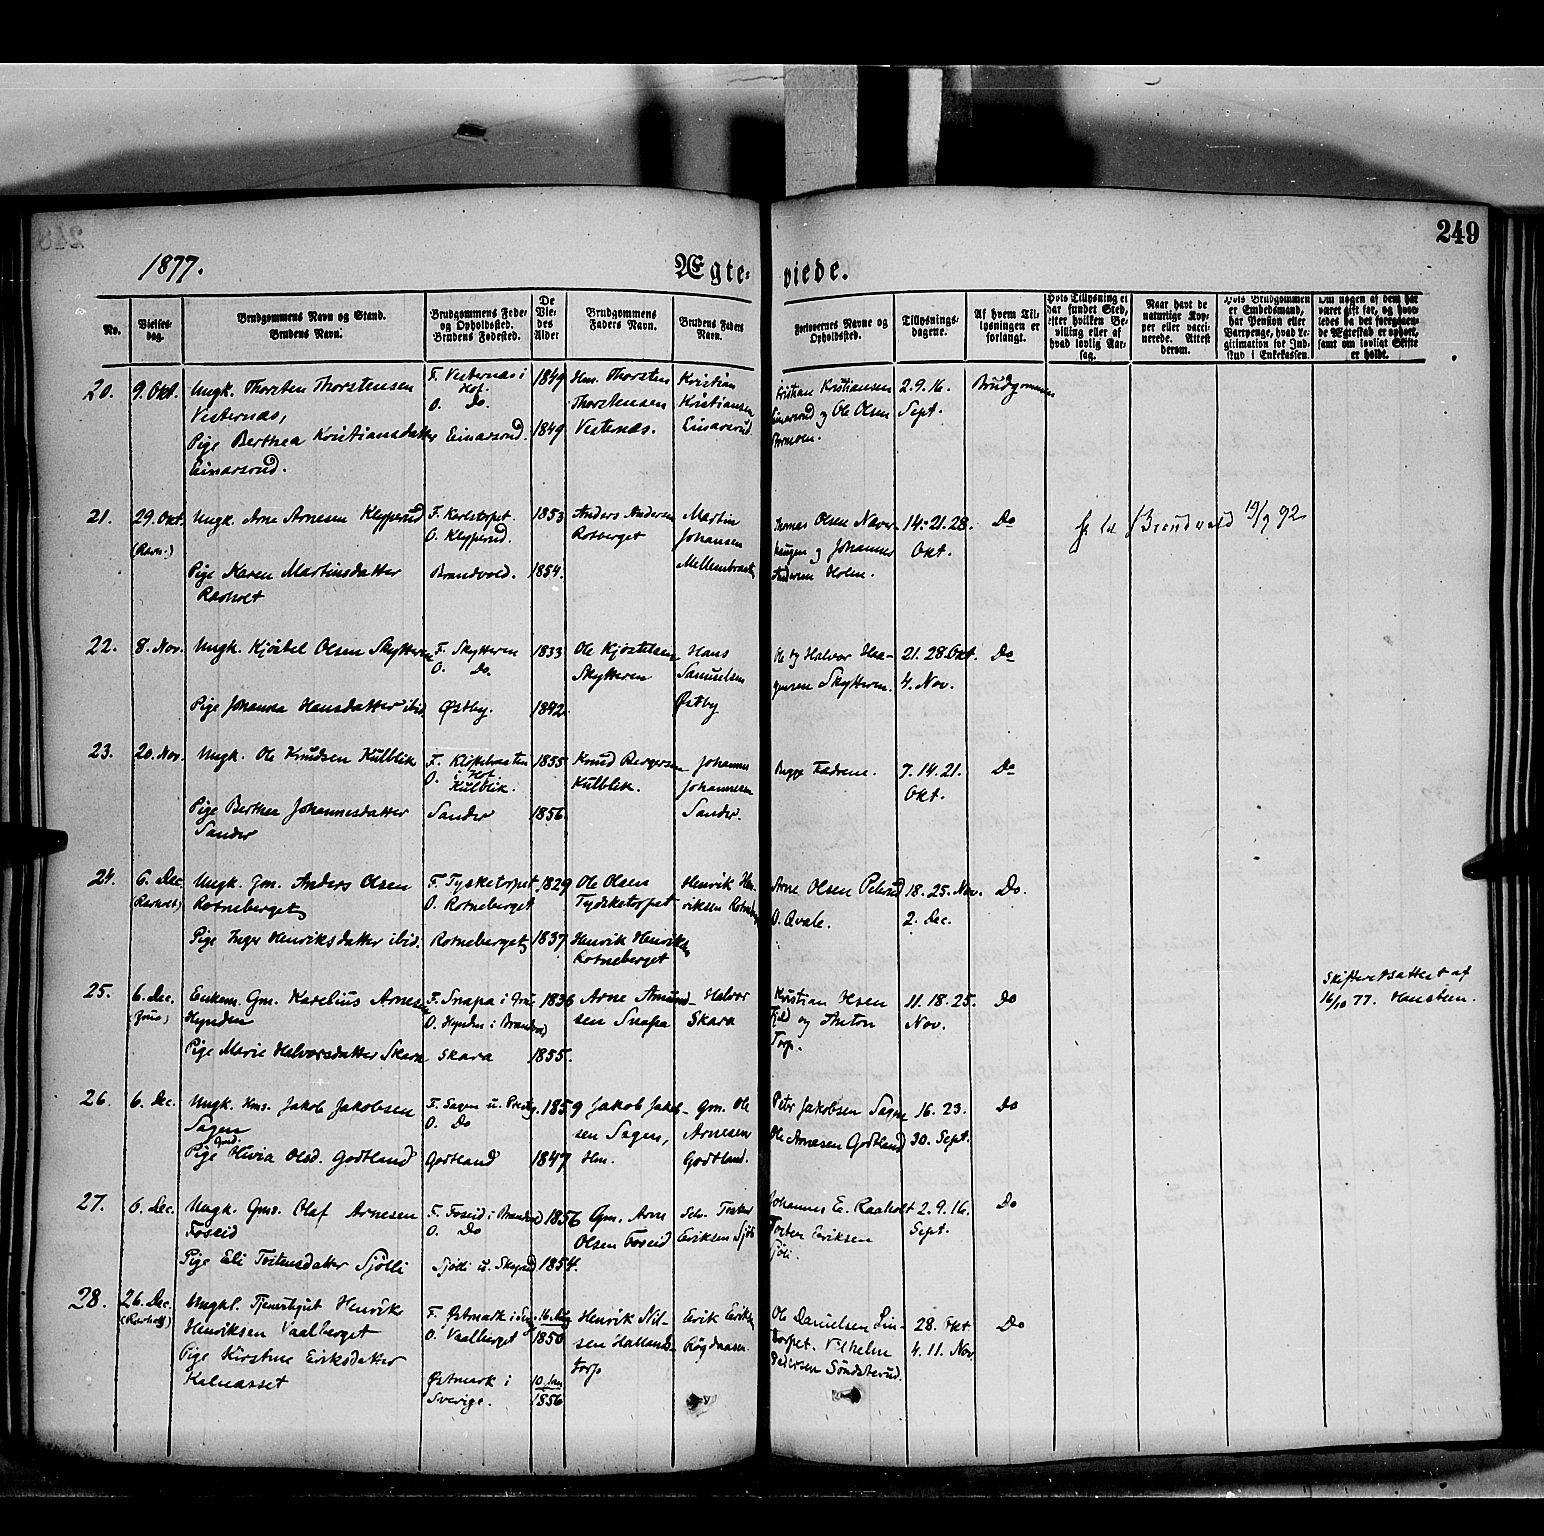 249
1877.
Ægte- viede.
No.
Vielses-
dag.
Brudgommens Navn og Stand.
Brudens Navn.
Brudgommens Føde-
og Opholdssted.
Brudens Fødested.
De
Vie-
des
Alder
Brudgommens
Faders Navn.
Brudens Faders
Navn.
Forlovernes Navne og
Opholdssted.
Tillysnings-
dagene.
Af hvem Til-
lysningen er
forlangt.
Hvis Tillysning ei
har fundet Sted,
efter hvilken Be-
villing eller af
hvad lovlig Aar-
sag.
Naar havt de
naturlige Kop-
per eller vacci-
nerede. Attest
derom.
Hvis Brudgommen
er Embedsmand,
har Pension eller
Vartpenge, hvad Le-
gitimation for Ind-
skud i Enkekassen.
Om nogen af dem har
været gift før, og hvor-
ledes da det foregaaen-
de Ægteskab er ophørt,
samt om lovligt Skifte
er holdt.
20.
9. Okt.
Ungk. Thorsten Thorstensen
Vesternæs,
Pige Berthea Kristiansdatter
Einarsrud.
F. Vesternæs i
Hof.
O. Do.
Einarsrud.
1849
1849
Hm. Thorsten
Thorstensen
Vesternæs.
Kristian
Kristiansen
Einarsrud
Kristian Kristiansen
Einarsrud og Ole Olsen
2. 9. 16.
Sept.
Brudgommen
21.
29. Okt.
Ungk. Arne Arnesen Klypperud
Pige Karen Martinsdatter
Raaholt
F. Karlstorpet.
O. Klypperud.
Brandvold.
1853
1854.
Anders Andersen
Rotberget
Martin
Johansen
Thomas Olsen Naver-
haugen og Johannes
Andersen Holen.
14. 21. 28.
Okt.
Do
Brandvold 19/9 92
22.
8. Nov.
Ungk. Kjöstel Olsen Skytteren
Pige Johanna Hansdatter ibid
F. Skytteren
O. Do.
Østby.
1833
1842.
Ole Kjöstelsen
Skytteren
Hans
Samuelsen
Østby
Ole og Halvor Haa-
gensen Skytteren.
21. 28. Okt.
4. Nov.
Do
23.
20. Nov.
Ungk. Ole Knudsen Kulblik
Pige Berthea Johannesdatter
Sander
i Hof.
O. Kulblik.
Sander
1855
1856.
Knud Bergersen
Kulblik.
Johannes
Johannesen
Sander.
Begge Fædrene.
7. 14. 21.
Okt.
Do
24.
6. Dec
(Raaholt)
Ungk. Gm. Anders Olsen
Rotneberget
Pige Inger Henriksdatter ibid.
F. Tysketorpet
O. Rotneberget
Rotneberget
1829
1837
Ole Olsen
Tydsketorpet
Henrik Henriksen
Rotneberget
Henrik Hen-
riksen
Arne Olsen Pelerud
O. Qvale.
18. 25. Nov.
2. Dec.
Do.
25.
6. Dec.
(Grue)
Enkem. Gm. Karelius Arnesen
Hynden
Pige Marie Halvorsdatter Skara
F. Snapa i Grue
O. Hynden i Brandvold
Skara
1836
1855.
Arne Amund-
sen Snapa
Halvor
Skara
Kristian Olsen
Fjeld og Anton
Torp.
11. 18. 25.
Nov.
Do
Skifteretsattest af
16/10 77. Hansteen.
26.
6. Dec.
Ungk. Hms. Jakob Jakobsen
Sagen
Pige Olivia Olsd. Godtland
F. Sagen u.
O. Do
Godtland
1859
1847
Jakob Jakob-
sen Sagen,
Hm.
Gm. Ole
Arnesen
Godtland.
Peter Jakobsen Sagen
Ole Arnesen Godtland
16. 23.
30. Sept.
Do
27.
6. Dec.
Ungk. Gms. Olaf Arnesen
Fosseid
Pige Eli Tostensdatter Sjölli
F. Fosseid i Brandvold
O. Do
Sjölli u.
1856
1854.
Gm. Arne
Olsen Fosseid
Selv. Tosten
Eriksen Sjöli
Johannes E. Raaholt
Tosten Eriksen
Sjöli.
2. 9. 16.
Sept.
Do
28.
26. Dec.
(Raaholt)
Ungkl. Tjenestegut Henrik
Henriksen Vaalberget
Pige Kirstine Eriksdatter
Kalnæsset
F. Østmark i
O. Vaalberget
Østmark i
Sverige.
16. Aug
1850
10. Jan
1856
Henrik Nil-
sen Halland-
torp
Erik Eriksen
Ole Danielsen Lin-
torpet. Vilhelm
Pedersen Söndsterud.
28. Okt
4. 11. Nov
Do